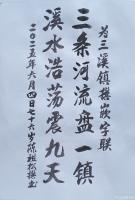 为三溪镇撰嵌字联
三条河流盘一镇
溪水浩荡震九天
二〇二五年六月四日七十六岁陈祖松撰书